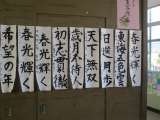 春光輝く
東海五色雲
日進月歩
天下無双
歳月不待人
初志貫徹
春光輝く
春光輝く
希望の年